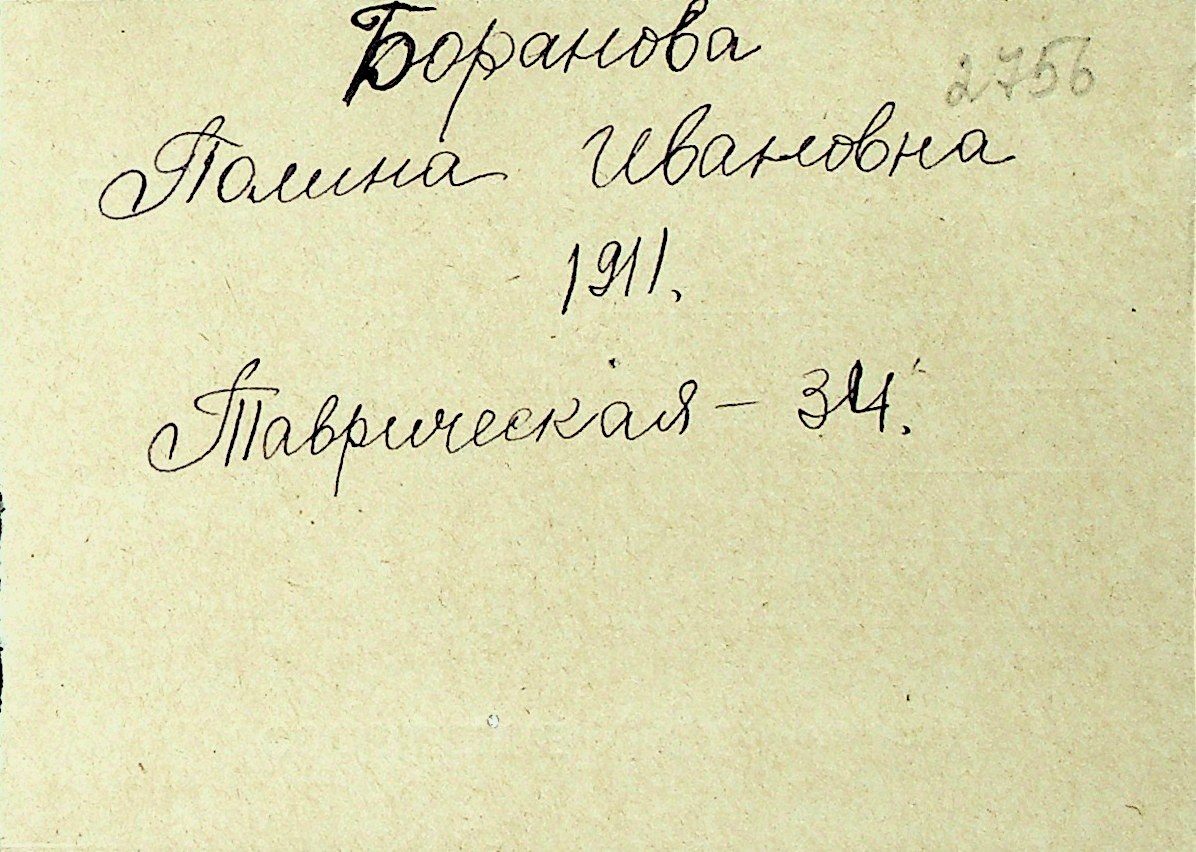 Боранова
2756
Полина Ивановна
1911.
Таврическая - 34.